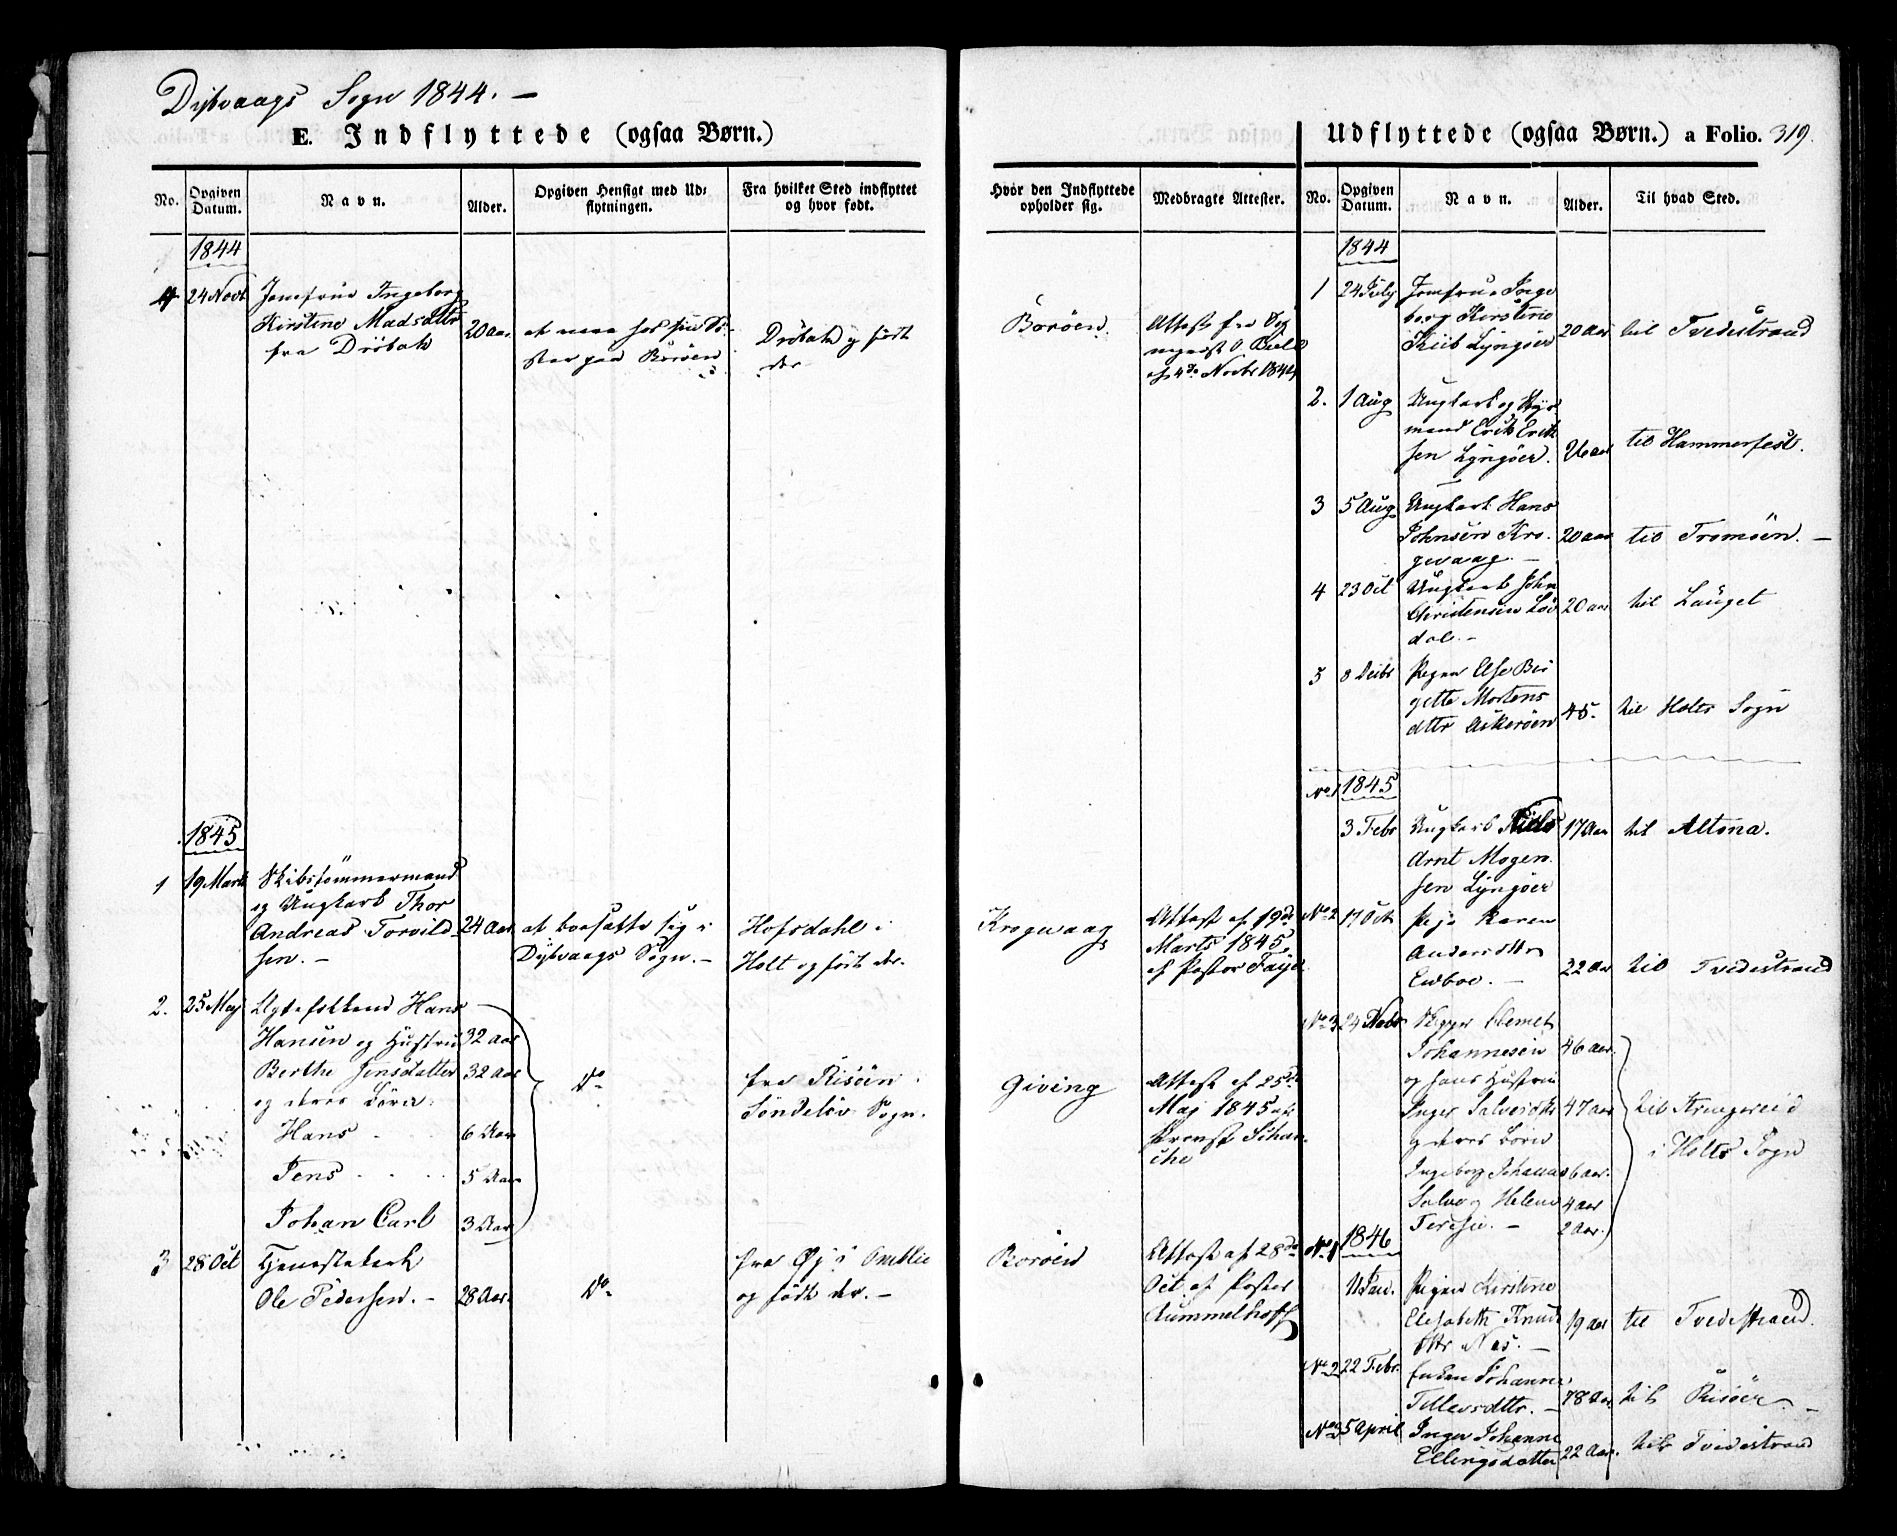 Dybvaags Sogn 1844. –
E. Indflyttede (ogsaa Børn.)
No.
Opgiven Datum.
Navn.
Alder.
Opgiven Hensigt med Udflytningen.
Fra hvilket Sted indflyttet og hvor født.
1844
4 24 Novb Jomfrue Ingeborg
Kirstine Madsdatter 20 Aar
fra Dröbak
Dröbak og født
der
1845
1 19 Marts Skibstömmermand
og Ungkarl Thor
Andreas Torvild- 24 Aar at bosætte sig i Hofsdahl i
sen. – Dybvaags Sogn. – Holt og født der.
2. 25 Maj Hans
Hansen og Hustrue 32 Aar
Berthe Jensdatter 32 Aar Do fra Risöen
og deres Börn Söndelöv Sogn.
Hans 6 Aar
Jens 5 Aar
Johan Carl 3 Aar
3 28 Oct Tjenestekarl fra Øj i Omblie
Ole Pedersen. – 28 Aar. Do og født der. –
Hvor den Indflyttede opholder sig.
Medbragte Attester.
Boröen
Attest fra
4de Novbr 1844
Krogvaag Attest af 19de
Marts 1845
af Pastor Faye
Giving Attest af 25de
Maj 1845 af
Boröen Attest af 28de
Oct. af Pastor
Rummelhoff
Udflyttede (ogsaa Børn.) a Folio. 319.
No.
Opgiven Datum.
Navn.
Alder.
Til hvad Sted.
1844
1 24 July Jomfrue Inge
borg Kirstine
Lyngöer 20 Aar til Tvedestrand
2. 1 Aug Ungkarl og Styr
mand Erik Erik
sen Lyngöer. 26 Aar til Hammerfest.
3 5 Aug Ungkarl Hans
Johnsen Kro- 20 Aar til Tromöen. –
gevaag. –
4 23 Oct Ungkarl John
Christensen Löv 20 Aar til Lauget
dal. –
5 8 Decbr Pigen Else Bir
gette Mortens
dttr Askeröen 45. til Holts Sogn
No 1 1845
3 Febr Ungkarl Niels 17 Aar til Altona.
Arnt Mogen
sen Lyngöer
No 2 17 Oct Pige Karen
Andersdttr
22 Aar til Tvedestrand
No 3 24 Novbr
Johannesen 46 Aar.
og hans Hustrue
Inger Salvesdttr 47 Aar
og deres Börn i Holts Sogn
Ingeborg Johanne 6 Aar.
Salve og Helene 4 Aar
Terese. – 2 Aar.
No 1 1846
11 Jan. Pigen Kirstine
Elisabeth Knuds 19 Aar til Tvedestrand.
dttr Næs. –
No 2 22 Febr. Enken Johanne
Tellevsdttr. – 78 Aar til Risöer. –
No 3 5 April Inger Johanne
Ellingsdatter 22 Aar. til Tvedestrand